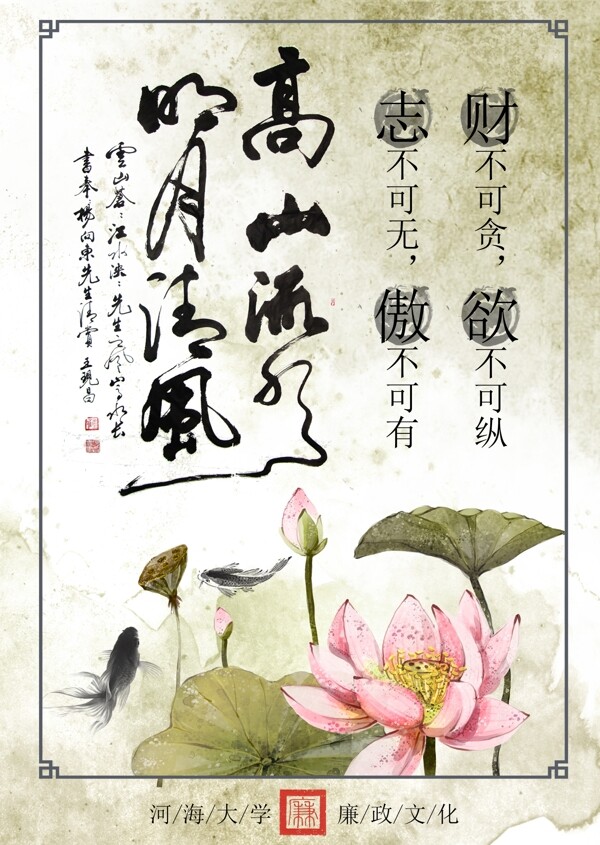 财不可贪，欲不可纵
志不可无，傲不可有
高山流水
明月清風
雲山蒼〻江水泱〻先生之风山高水长
書奉楊向東先生清賞
河/海/大/学 廉 廉/政/文/化